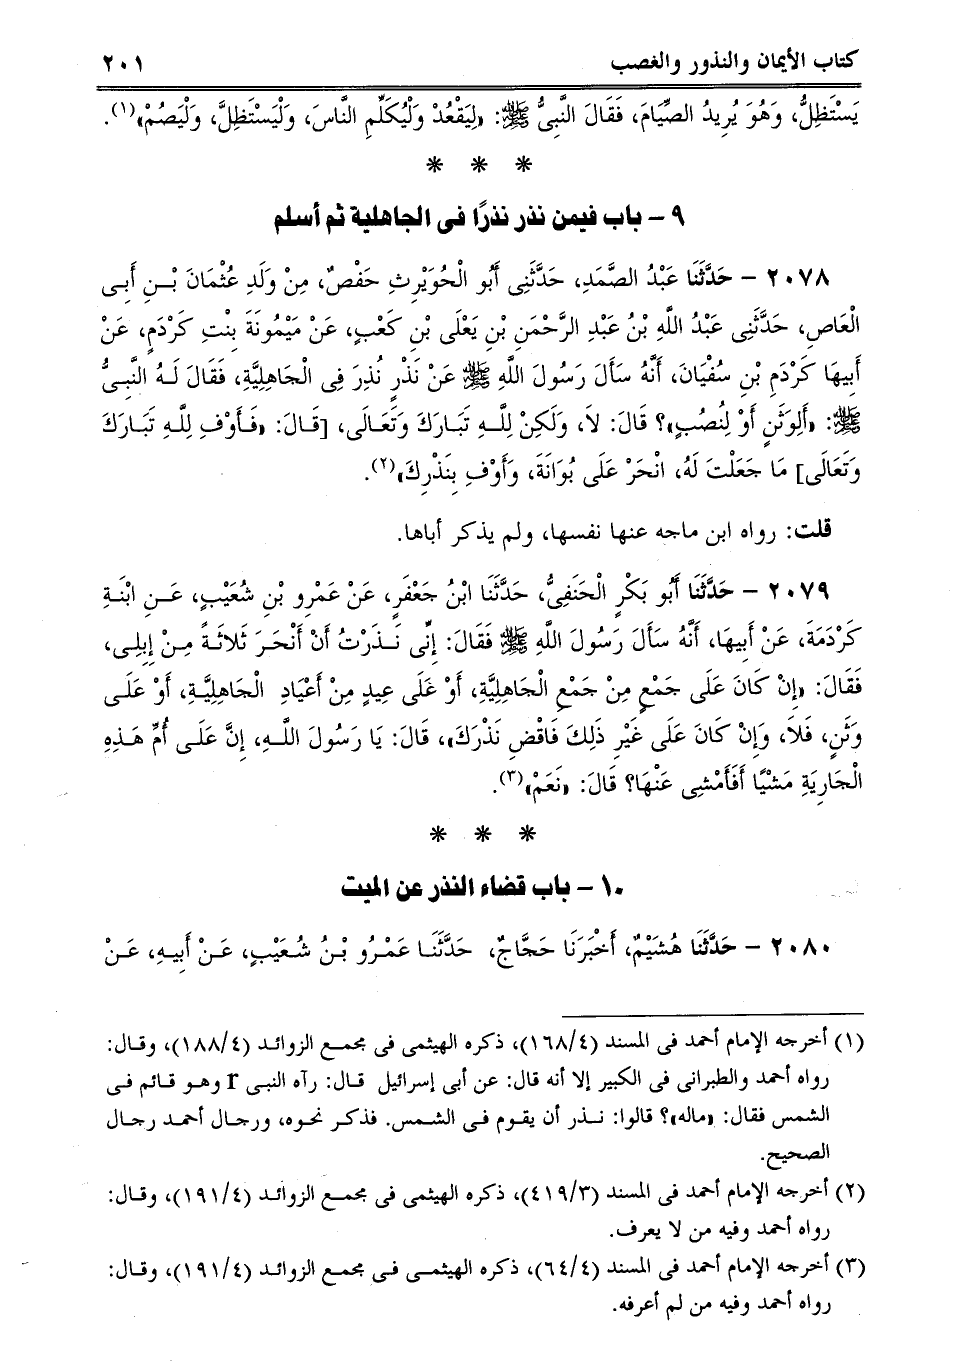 كتاب الأيمان والنذور والغصب ٢٠١
يَسْتَظِلُّ، وَهُوَ يُرِيدُ الصِّيَامَ، فَقَالَ النَّبِىُّ ﷺ: «لِيَقْعُدْ وَلْيُكَلِّمِ النَّاسَ، وَلْيَسْتَظِلَّ، وَلْيَصُمْ»(١).
* * *
٩ - باب فيمن نذر نذرًا فى الجاهلية ثم أسلم
٢٠٧٨ - حَدَّثَنَا عَبْدُ الصَّمَدِ، حَدَّثَنِى أَبُو الْحُوَيْرِثِ حَفْصٌ، مِنْ وَلَدِ عُثْمَانَ بْنِ أَبِى
الْعَاصِ، حَدَّثَنِى عَبْدُ اللَّهِ بْنُ عَبْدِ الرَّحْمَنِ بْنِ يَعْلَى بْنِ كَعْبٍ، عَنْ مَيْمُونَةَ بِنْتِ كَرْدَمٍ، عَنْ
أَبِيهَا كَرْدَمِ بْنِ سُفْيَانَ، أَنَّهُ سَأَلَ رَسُولَ اللَّهِ ﷺ عَنْ نَذْرٍ نُذِرَ فِى الْجَاهِلِيَّةِ، فَقَالَ لَهُ النَّبِىُّ
ﷺ: «أَلِوَثَنٍ أَوْ لِنُصُبٍ»؟ قَالَ: لاَ، وَلَكِنْ لِلَّهِ تَبَارَكَ وَتَعَالَى، [قَالَ: «فَأَوْفِ لِلَّهِ تَبَارَكَ
وَتَعَالَى] مَا جَعَلْتَ لَهُ، انْحَرْ عَلَى بُوَانَةَ، وَأَوْفِ بِنَذْرِكَ»(٢).
قلت: رواه ابن ماجه عنها نفسها، ولم يذكر أباها.
٢٠٧٩ - حَدَّثَنَا أَبُو بَكْرٍ الْحَنَفِىُّ، حَدَّثَنَا ابْنُ جَعْفَرٍ، عَنْ عَمْرِو بْنِ شُعَيْبٍ، عَنِ ابْنَةِ
كَرْدَمَةَ، عَنْ أَبِيهَا، أَنَّهُ سَأَلَ رَسُولَ اللَّهِ ﷺ فَقَالَ: إِنِّى نَذَرْتُ أَنْ أَنْحَرَ ثَلاَثَةً مِنْ إِبِلِى،
فَقَالَ: «إِنْ كَانَ عَلَى جَمْعٍ مِنْ جَمْعِ الْجَاهِلِيَّةِ، أَوْ عَلَى عِيدٍ مِنْ أَعْيَادِ الْجَاهِلِيَّةِ، أَوْ عَلَى
وَثَنٍ، فَلاَ، وَإِنْ كَانَ عَلَى غَيْرِ ذَلِكَ فَاقْضِ نَذْرَكَ»، قَالَ: يَا رَسُولَ اللَّهِ، إِنَّ عَلَى أُمِّ هَذِهِ
الْجَارِيَةِ مَشْيًا أَفَأَمْشِى عَنْهَا؟ قَالَ: «نَعَمْ»(٣).
* * *
١٠ - باب قضاء النذر عن الميت
٢٠٨٠ - حَدَّثَنَا هُشَيْمٌ، أَخْبَرَنَا حَجَّاجٌ، حَدَّثَنَا عَمْرُو بْنُ شُعَيْبٍ، عَنْ أَبِيهِ، عَنْ
(١) أخرجه الإمام أحمد فى المسند (١٦٨/٤)، ذكره الهيثمى فى مجمع الزوائد (١٨٨/٤)، وقال:
رواه أحمد والطبرانى فى الكبير إلا أنه قال: عن أبى إسرائيل قال: رآه النبى r وهو قائم فى
الشمس فقال: «ماله»؟ قالوا: نذر أن يقوم فى الشمس. فذكر نحوه، ورجال أحمد رجال
الصحيح.
(٢) أخرجه الإمام أحمد فى المسند (٤١٩/٣)، ذكره الهيثمى فى مجمع الزوائد (١٩١/٤)، وقال:
رواه أحمد وفيه من لا يعرف.
(٣) أخرجه الإمام أحمد فى المسند (٦٤/٤)، ذكره الهيثمى فى مجمع الزوائد (١٩١/٤)، وقال:
رواه أحمد وفيه من لم أعرفه.